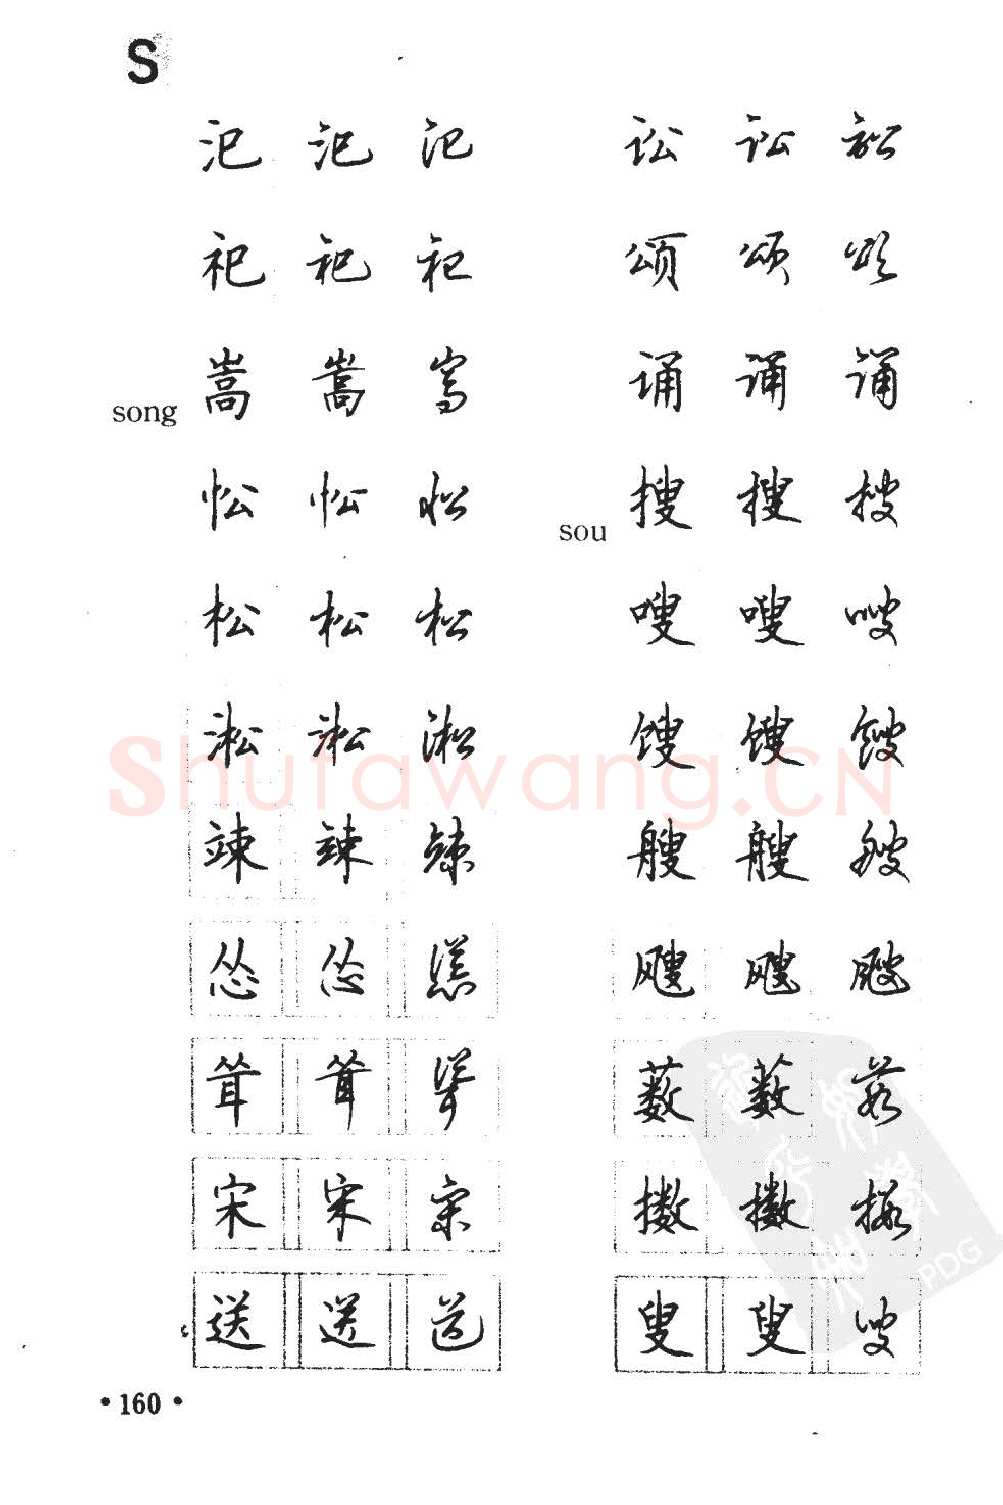 S
汜 汜 汜
祀 祀 祀
song 嵩 嵩 嵩
忪 忪 忪
松 松 松
淞 淞 淞
竦 竦 竦
怂 怂 慫
耸 耸 聳
宋 宋 宋
送 送 送
讼 讼 訟
颂 颂 颂
诵 诵 诵
sou 搜 搜 搜
嗖 嗖 嗖
馊 馊 馊
艘 艘 艘
飕 飕 飕
薮 薮 薮
擞 擞 擞
叟 叟 叟
Shufawang.CN
PDG
•160•